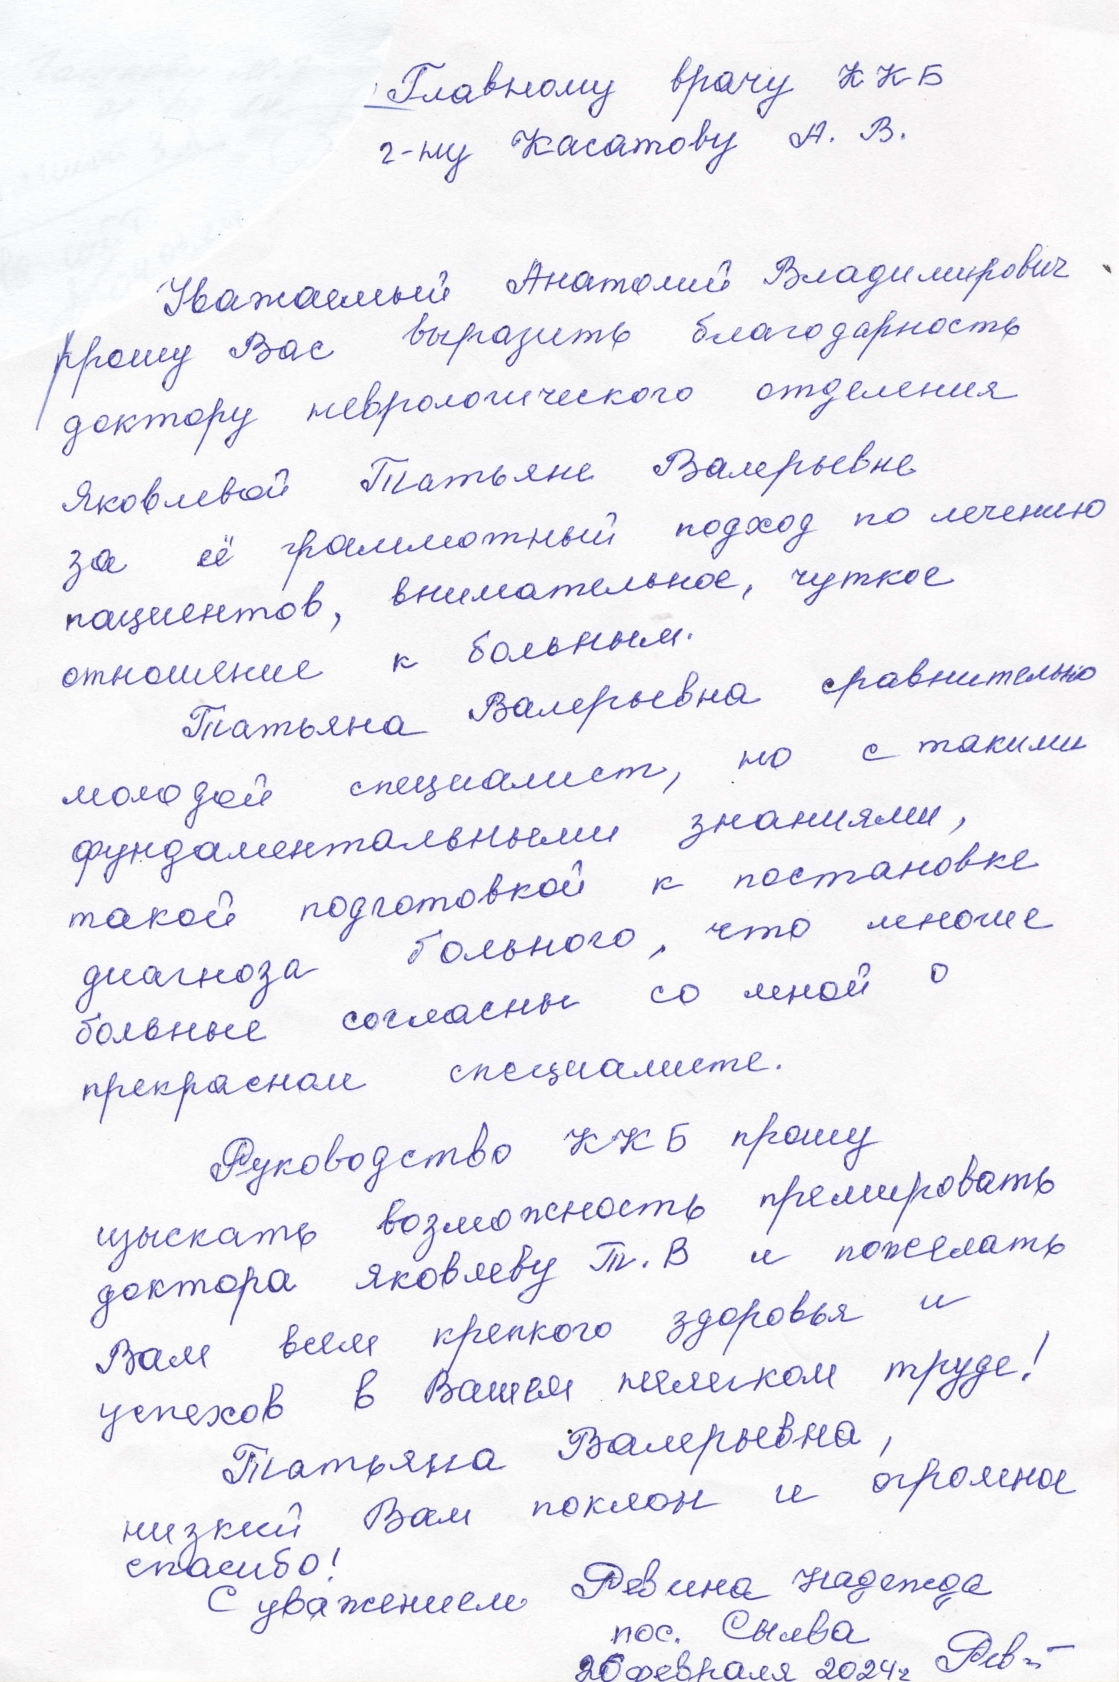 Главному врачу ККБ
г-ну Касатову А. В.
Уважаемый Анатолий Владимирович
прошу Вас выразить благодарность
доктору неврологического отделения
Яковлевой Татьяне Валерьевне
за её граммотный подход по лечению
пациентов, внимательное, чуткое
отношение к больным.
Татьяна Валерьевна сравнительно
молодой специалист, но с такими
фундаментальными знаниями,
такой подготовкой к постановке
диагноза больного, что многие
больные согласны со мной о
прекрасном специалисте.
Руководство ККБ прошу
изыскать возможность премировать
доктора Яковлеву Т. В и пожелать
Вам всем крепкого здоровья и
успехов в Вашем нелегком труде!
Татьяна Валерьевна,
низкий Вам поклон и огромное
спасибо!
С уважением Ревина Надежда
пос. Сылва
26 февраля 2024г Рев